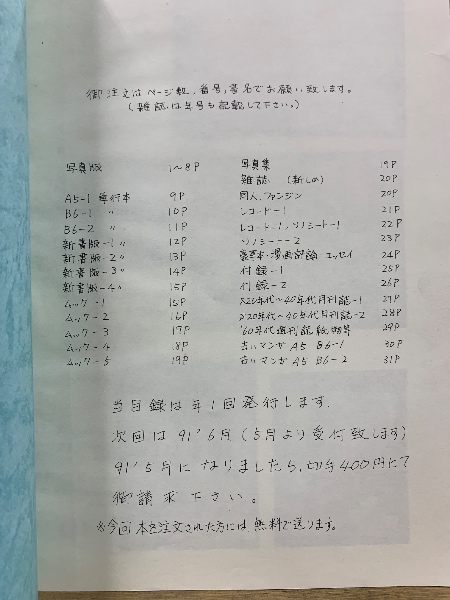 御注文はページ数、番号、書名でお願い致します。
(雑誌は年号も記載して下さい。)
写真版 1〜8P
A5-1 単行本 9P
B6-1 〃 10P
B6-2 〃 11P
新書版-1 〃 12P
新書版-2 〃 13P
新書版-3 〃 14P
新書版-4 〃 15P
ムック-1 15P
ムック-2 16P
ムック-3 17P
ムック-4 18P
ムック-5 19P
写真集 19P
雑誌 (新しめ) 20P
同人、ファンジン 20P
レコード-1 21P
レコード-1、ソノシート-1 22P
ソノシート-2 23P
豪華本・漫画評論 エッセイ 24P
付録-1 25P
付録-2 26P
S20年代〜40年代月刊誌-1 27P
S20年代〜40年代月刊誌-2 28P
'60年代週刊誌 29P
古いマンガ A5 B6-1 30P
古いマンガ A5 B6-2 31P
当目録は年1回発行します。
次回は91'6月(5月より受付致します)
91'5月になりましたら、切手400円にて
御請求下さい。
※今回本を注文された方には無料で送ります。